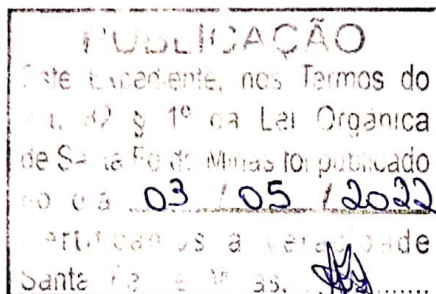 PUBLICAÇÃO
Este Expediente, nos Termos do
Art. 82 § 1º da Lei Orgânica
de Santa Fé de Minas foi publicado
no dia 03 / 05 / 2022
Certificamos a veracidade
Santa Fé de Minas,